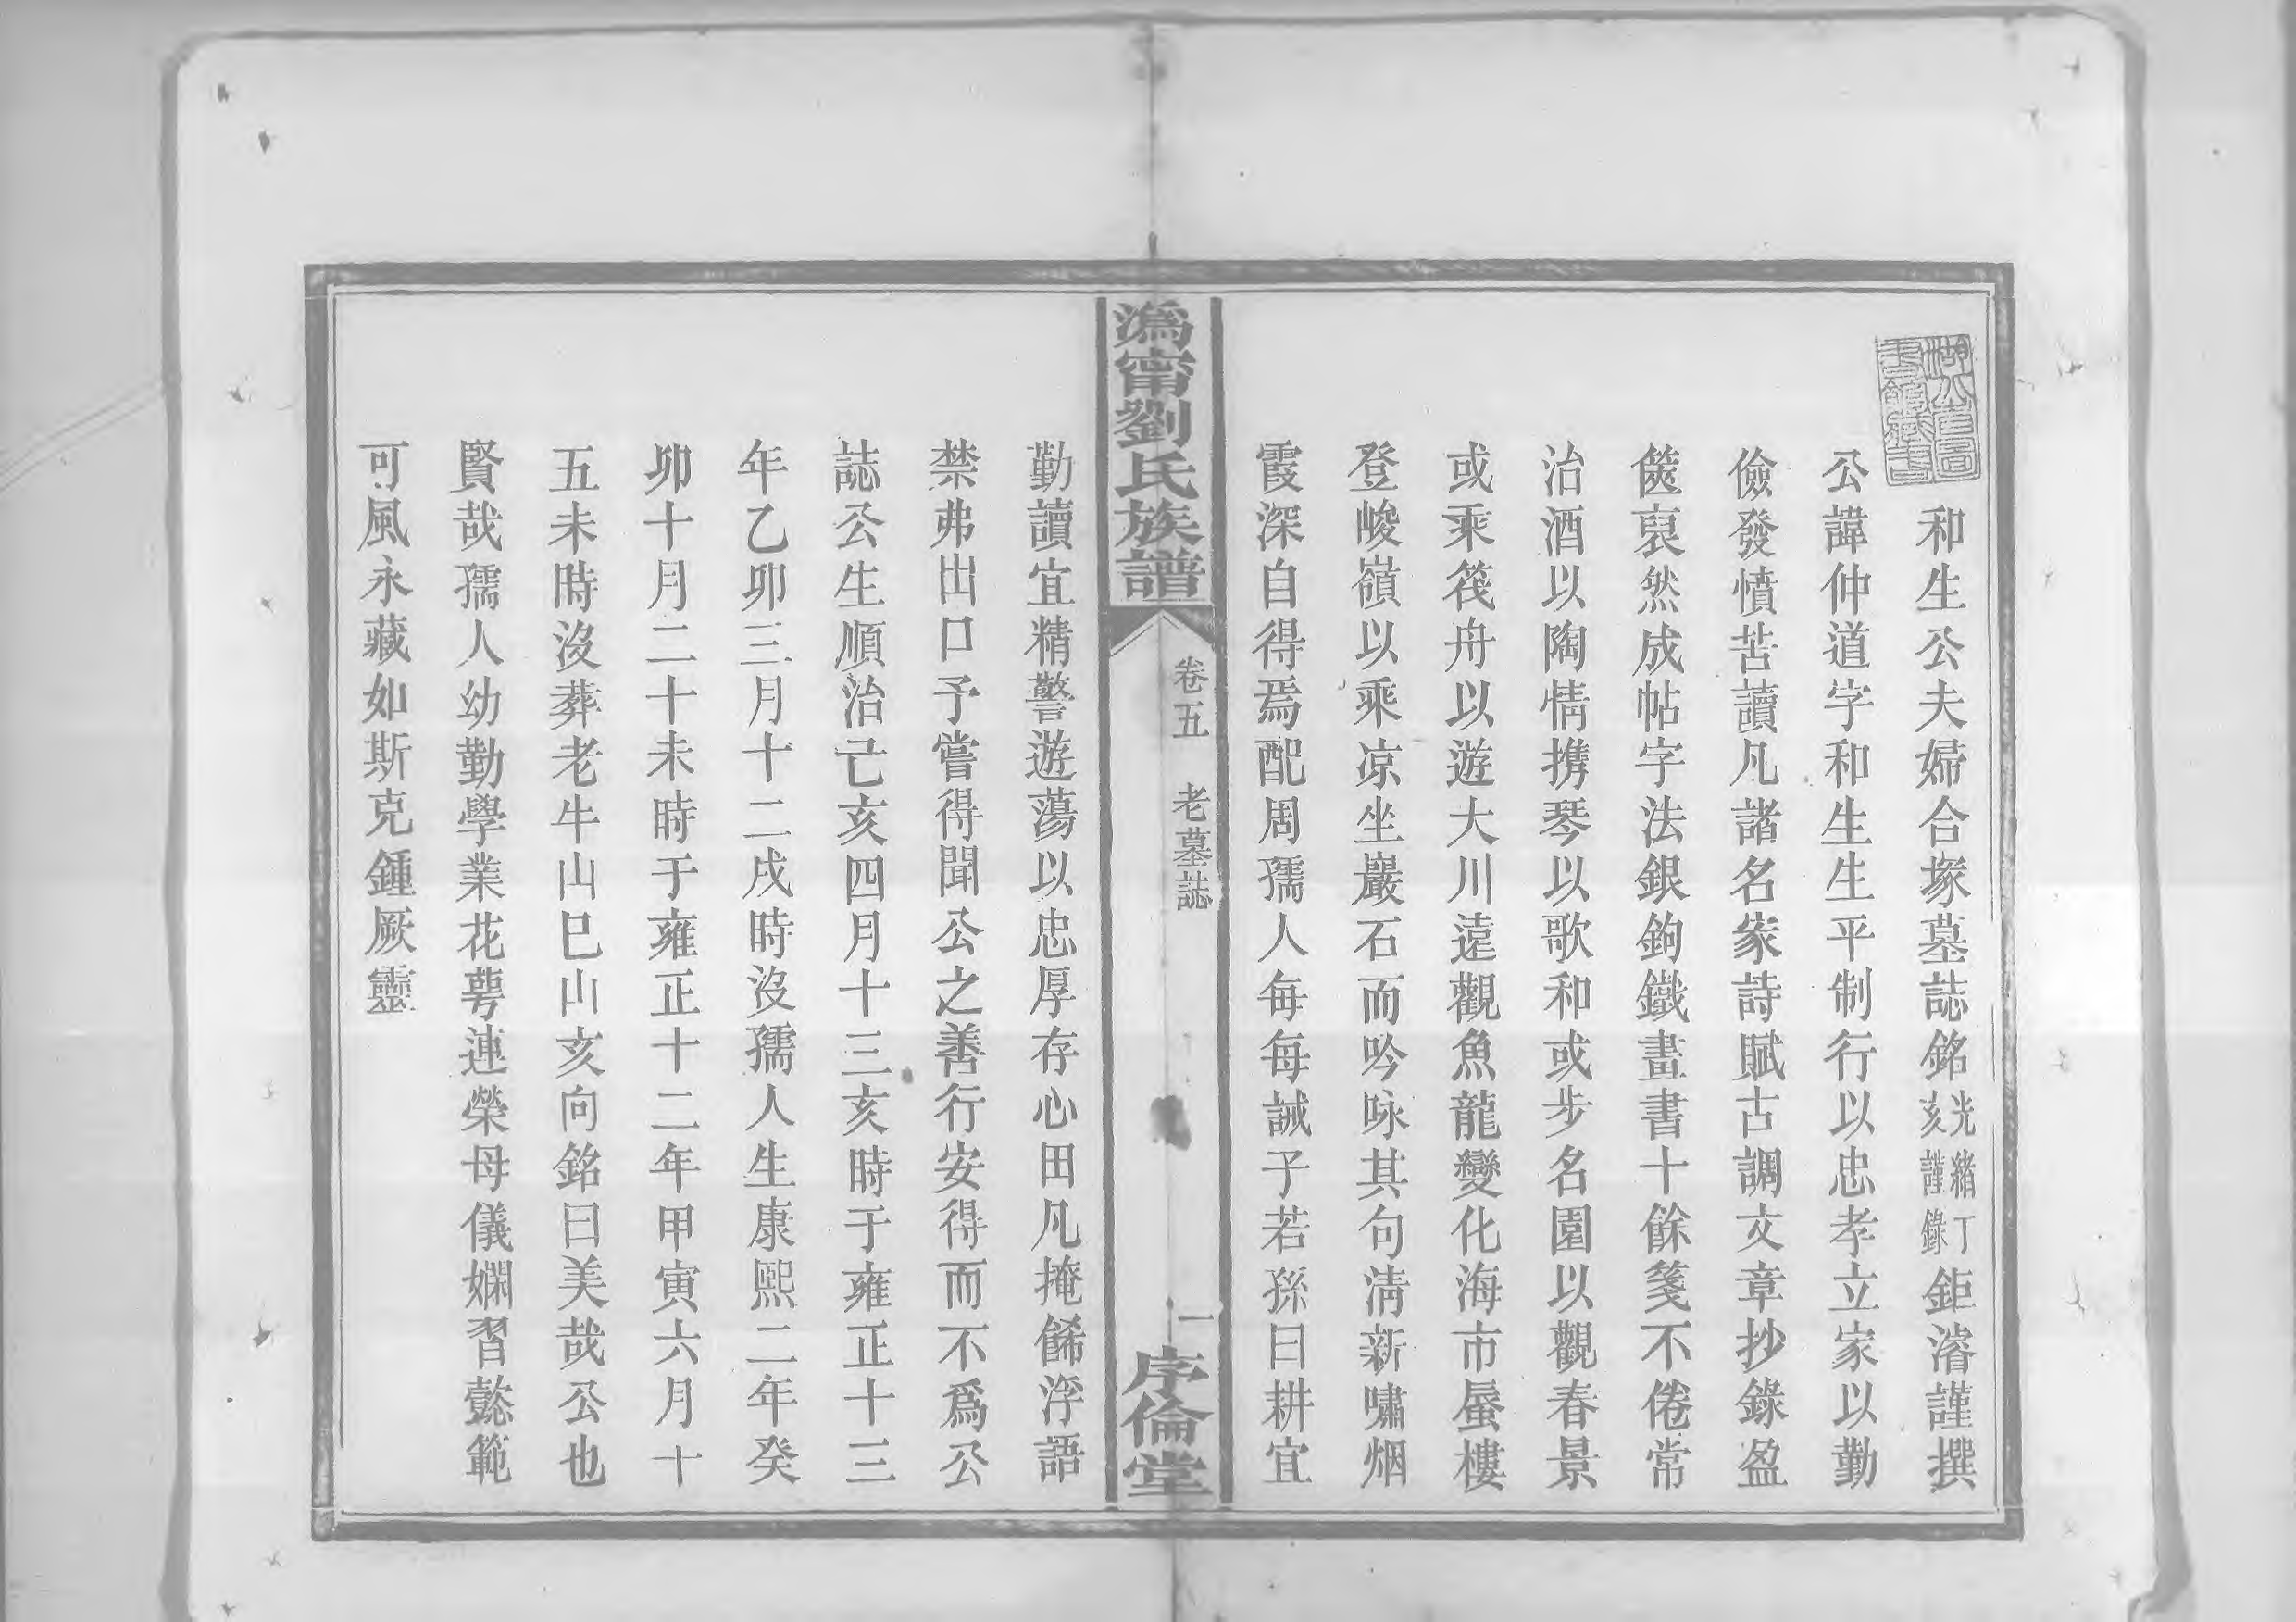 和生公夫婦合塚墓誌銘光緒丁亥謹錄鉅濬謹撰
公諱仲道字和生生平制行以忠孝立家以勤
儉發憤苦讀凡諸名家詩賦古調文章抄錄盈
篋裒然成帖字法銀鉤鐵畫書十餘箋不倦常
治酒以陶情携琴以歌和或步名園以觀春景
或乘筏舟以遊大川遠觀魚龍變化海市蜃樓
登峻嶺以乘凉坐巖石而吟咏其句淸新嘯烟
霞深自得焉配周孺人每每誡子若孫曰耕宜
溈甯劉氏族譜
卷五 老墓誌
一
序倫堂
勤讀宜精警遊蕩以忠厚存心田凡掩餙浮語
禁弗出口予嘗得聞公之善行安得而不爲公
誌公生順治己亥四月十三亥時于雍正十三
年乙卯三月十二戌時沒孺人生康熙二年癸
卯十月二十未時于雍正十二年甲寅六月十
五未時沒葬老牛山巳山亥向銘曰美哉公也
賢哉孺人幼勤學業花萼連榮母儀嫻習懿範
可風永藏如斯克鍾厥靈